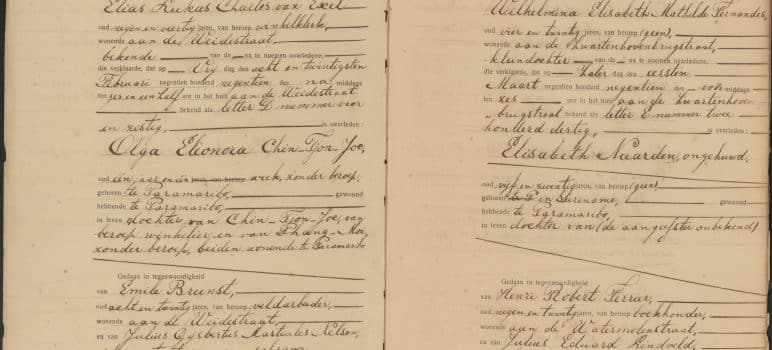 Elias Lukas Charles van Exel
oud negen en veertig jaren, van beroep winkelklerk,
wonende aan de Weidestraat,
bekende van de na te noemen overledene,
die verklaarde, dat op Vrij dag des acht en twintigsten
Februari negentien honderd negentien des na middags
ten zes en een half ure in het huis aan de Weidestraat
bekend als letter D nummer vier
en zestig, is overleden:
Olga Eleonora Chin-Tjon-Joe,
oud één jaar en één week, zonder beroep,
geboren te Paramaribo, gewoond
hebbende te Paramaribo,
in leven dochter van Chin-Tjon-Joe, van
beroep winkelier en van Phang-Moe,
zonder beroep, beiden wonende te Paramaribo
Gedaan in tegenwoordigheid
van Emile Brunst,
oud acht en twintig jaren, van beroep veldarbeider,
wonende aan de Weidestraat,
en van Julius Gysbertus Martinles Nelson,
Wilhelmina Elisabeth Mathilde Fernandes,
oud vier en twintig jaren, van beroep (geen)
wonende aan de Zwartenhovenbrugstraat,
kleindochter van de na te noemen overledene,
die verklaarde, dat op Zater dag des eersten
Maart negentien honderd negentien des voor middags
ten zes ure in het huis aan de Zwartenhoven
„brugstraat bekend als letter E nummer twee
honderd dertig, is overleden:
Elisabeth Naarden, ongehuwd,
oud vijf en zeventig jaren, van beroep (geen)
geboren te P in Suriname, gewoond
hebbende te Paramaribo,
in leven dochter van (de aangeefster onbekend)
Gedaan in tegenwoordigheid
van Henri Robert Ferrier,
oud negen en twintig jaren, van beroep boekhouder,
wonende aan de Watermolenstraat,
en van Julius Eduard Lindveld,